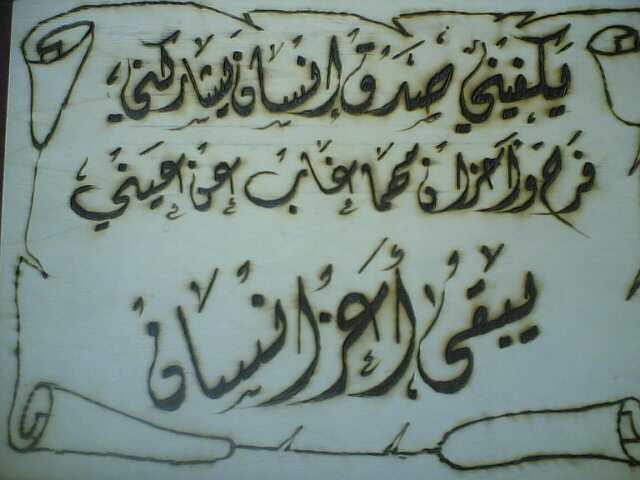 يكفيني صدق إنسان يشاركني
فرح وأحزان مهما غاب عن عيني
يبقى أعز انسان